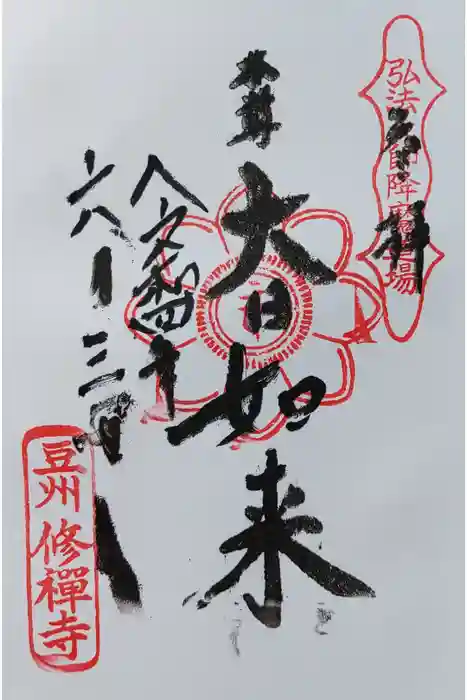 弘法大師降魔道場
奉拝
本尊
大日如来
令和四年
八月十三日
豆州修禪寺